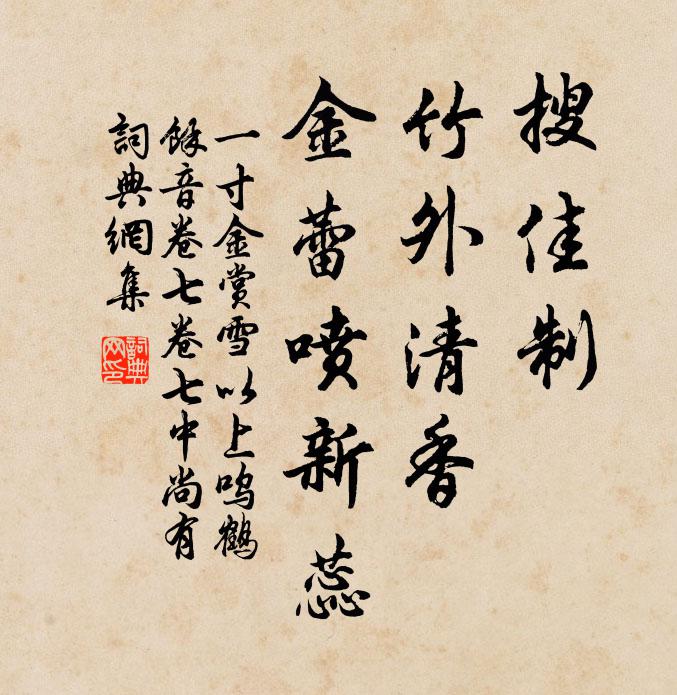 搜佳制
竹外清香
金蕾喷新蕊
一寸金赏雪以上鸣鹤
餘音卷七卷七中尚有
詞典網集
詞典网印